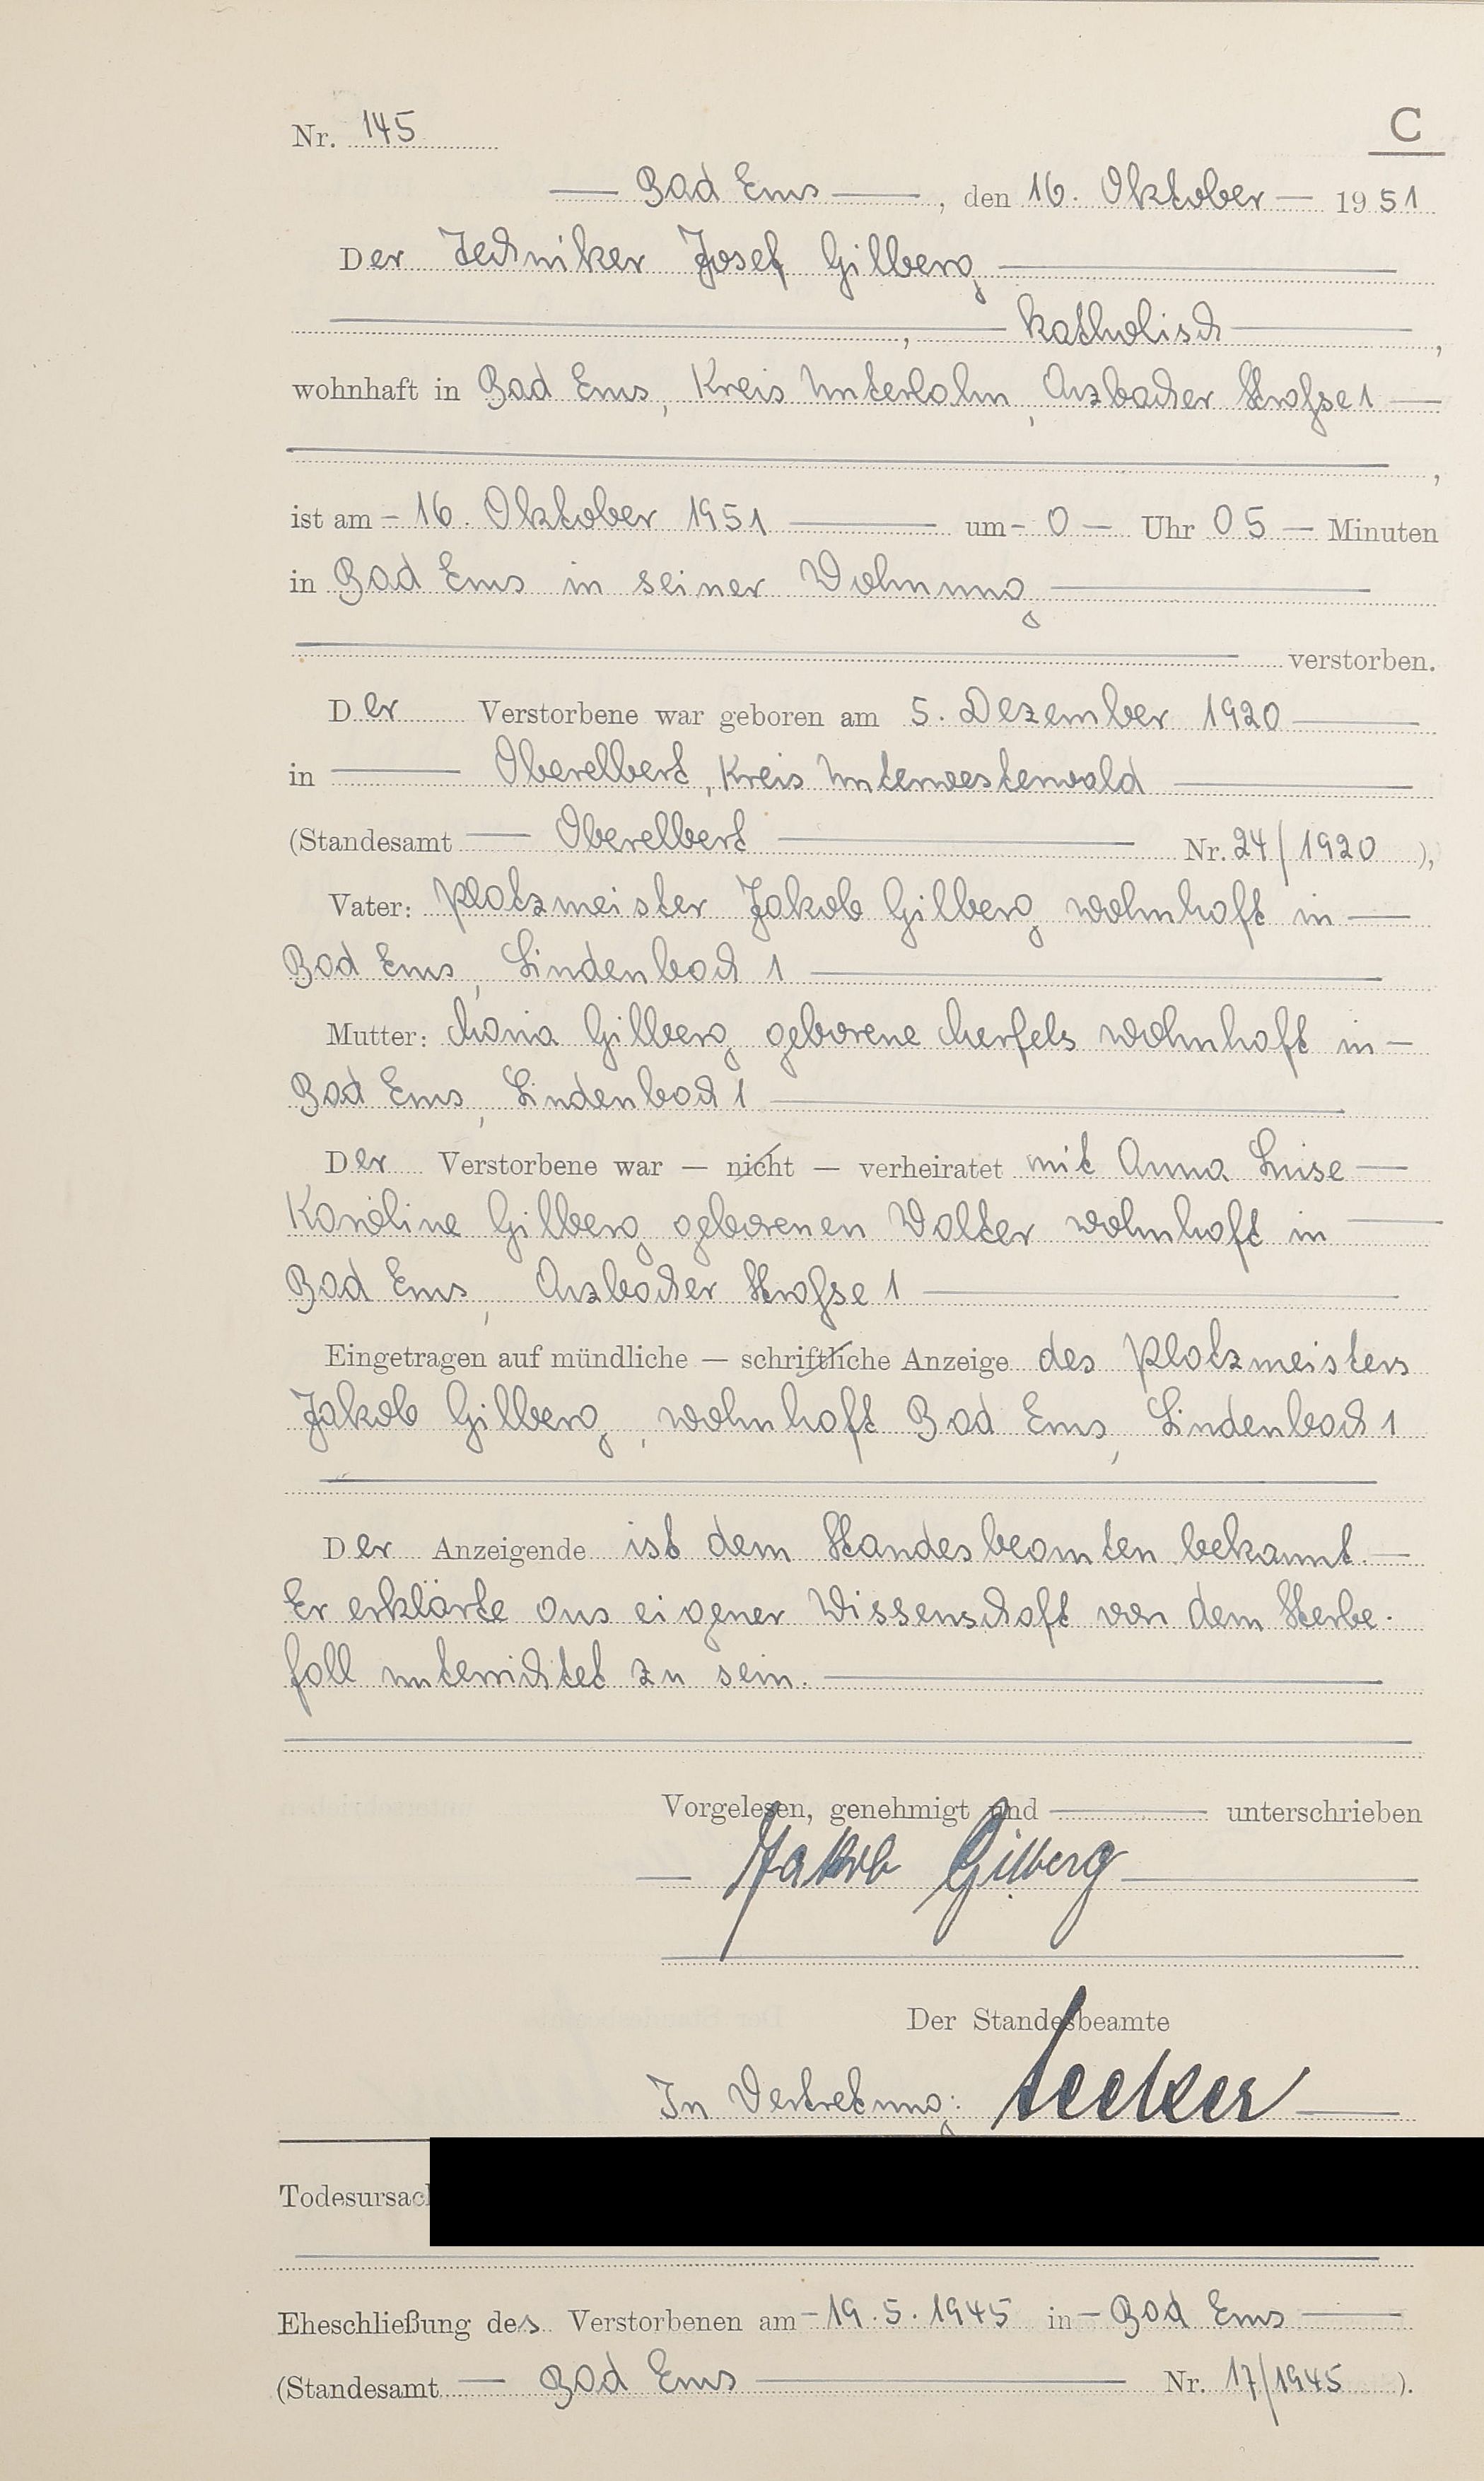 Nr. 145
C
Bad Ems, den 16. Oktober 1951
Der Techniker Josef Gilberg
, katholisch,
wohnhaft in Bad Ems, Kreis Unterlahn, Arzbacher Straße 1
,
ist am 16. Oktober 1951 um 0 Uhr 05 Minuten
in Bad Ems in seiner Wohnung
verstorben.
Der Verstorbene war geboren am 5. Dezember 1920
in Oberelbert, Kreis Unterwesterwald
(Standesamt Oberelbert Nr. 24/1920),
Vater: Platzmeister Jakob Gilberg wohnhaft in
Bad Ems, Lindenbach 1
Mutter: Maria Gilberg geborene Merfels wohnhaft in
Bad Ems, Lindenbach 1
Der Verstorbene war — nicht — verheiratet mit Anna Luise
Karoline Gilberg geborenen Walter wohnhaft in
Bad Ems, Arzbacher Straße 1
Eingetragen auf mündliche — schriftliche Anzeige des Platzmeisters
Jakob Gilberg, wohnhaft Bad Ems, Lindenbach 1
Der Anzeigende ist dem Standesbeamten bekannt.
Er erklärte aus eigener Wissenschaft von dem Sterbe-
fall unterrichtet zu sein.
Vorgelesen, genehmigt und unterschrieben
Jakob Gilberg
Der Standesbeamte
In Vertretung:
Todesursac
Eheschließung des Verstorbenen am 19.5.1945 in Bad Ems
(Standesamt Bad Ems Nr. 17/1945).